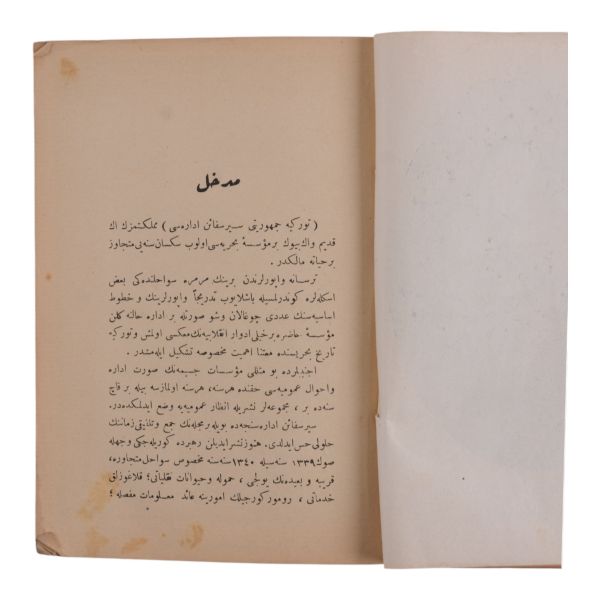 مدخل
( توركیه جمهوریتی سیر سفائن اداره‌سی ) مملكتمزك اك
قدیم واك بیوك بر مؤسسهٔ بحریه‌سی اولوب سكسان سنه‌یی متجاوز
بر حیاته مالكدر .
ترسانه واپورلرندن برینك مرمره سواحلنده‌كی بعض
اسكله‌لره كوندرلمسیله باشلایوب تدریجاً واپورلرینك و خطوط
اساسیه‌سنك عددی چوغالان وشو صورتله بر اداره حالنه كلن
مؤسسهٔ حاضره برخیلی ادوار انقلابیه‌نك معكسی اولمش وتوركیه
تاریخ بحریسنده معتنا اهمیت مخصوصه تشكیل ایله‌مشدر .
اجنبلرده بو مثللی مؤسسات جسیمه‌نك صورت اداره
واحوال عمومیه‌سی حقنده هرسنه ، هرسنه اولمازسه بیله بر قاچ
سنه‌ده بر ، مجموعه‌لر نشریله انظار عمومیه‌یه وضع ایدلمكده‌در.
سیر سفائن اداره‌سنجه‌ده بویله بر مجله‌نك جمع وتلفیقی زماننك
حلولی حس ایدلدی. هنوز نشر ایدیلن رهبرده كوریله‌جكی وجهله
صوك ۱۳۳۹ سنه‌سیله ۱۳۴۰ سنه‌سنه مخصوص سواحل متجاوره،
قریبه و بعیده‌نك یولجی ، حموله وحیوانات نقلیاتی؛ قلاغوزلق
خدماتی ، رومورکورجیلك امورینه عائد معلومات مفصله ؛